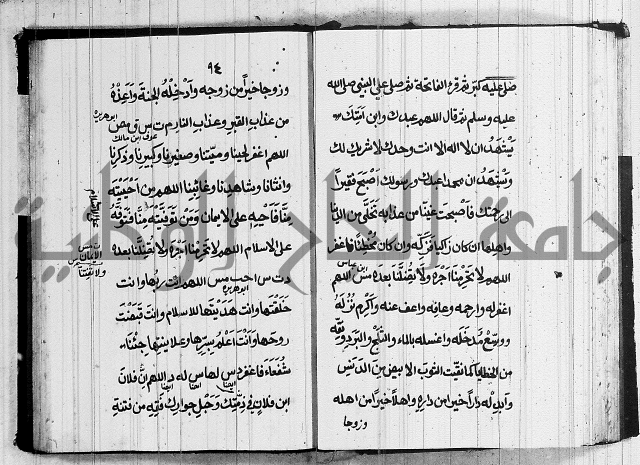 صلي عليه كبر ثم قرء الفاتحة ثم صلي علي النبي صلي الله
عليه وسلم ثم قال اللهم عبدك وابن امتك
يشهد ان لا اله الا انت وحدك لا شريك لك
ويشهد ان محمدا عبدك ورسولك اصبح فقيرا
الي رحمتك واصبحت غنيا عن عذابه تخلي من الدنيا
واهلها ان كان زاكيا فزكه وان كان مخطئا فاغفر
اللهم لا تحرمنا اجره ولا تضلنا بعده مس اللهم
ابن عباس
اغفر له وارحمه وعافه واعف عنه واكرم نزله
ووسع مدخله واغسله بالماء والثلج والبرد ونقه
من الخطايا كما نقيت الثوب الابيض من الدنس
وابدله دارا خيرا من داره واهلا خيرا من اهله
وزوجا
٩٤
وزوجا خيرا من زوجه وادخله الجنة واعذه
من عذاب القبر وعذاب النار م ت س ق مص
ابو هريرة
عوف ابن مالك
اللهم اغفر لحينا وميتنا وصغيرنا وكبيرنا وذكرنا
وانثانا وشاهدنا وغائبنا اللهم من احييته
منا فاحيه علي الايمان ومن توفيته منا فتوفه
علي الاسلام اللهم لا تحرمنا اجره ولا تضلنا بعده
د ت س احب مس اللهم انت ربها وانت
ابو هريرة
خلقتها وانت هديتها للاسلام وانت قبضت
روحها وانت اعلم بسرها وعلانيتها جئنا
شفعاء فاغفر د س لها س له د اللهم ان فلان
ابن فلان في ذمتك وحبل جوارك فقه من فتنة
جامعة النجاح الوطنية